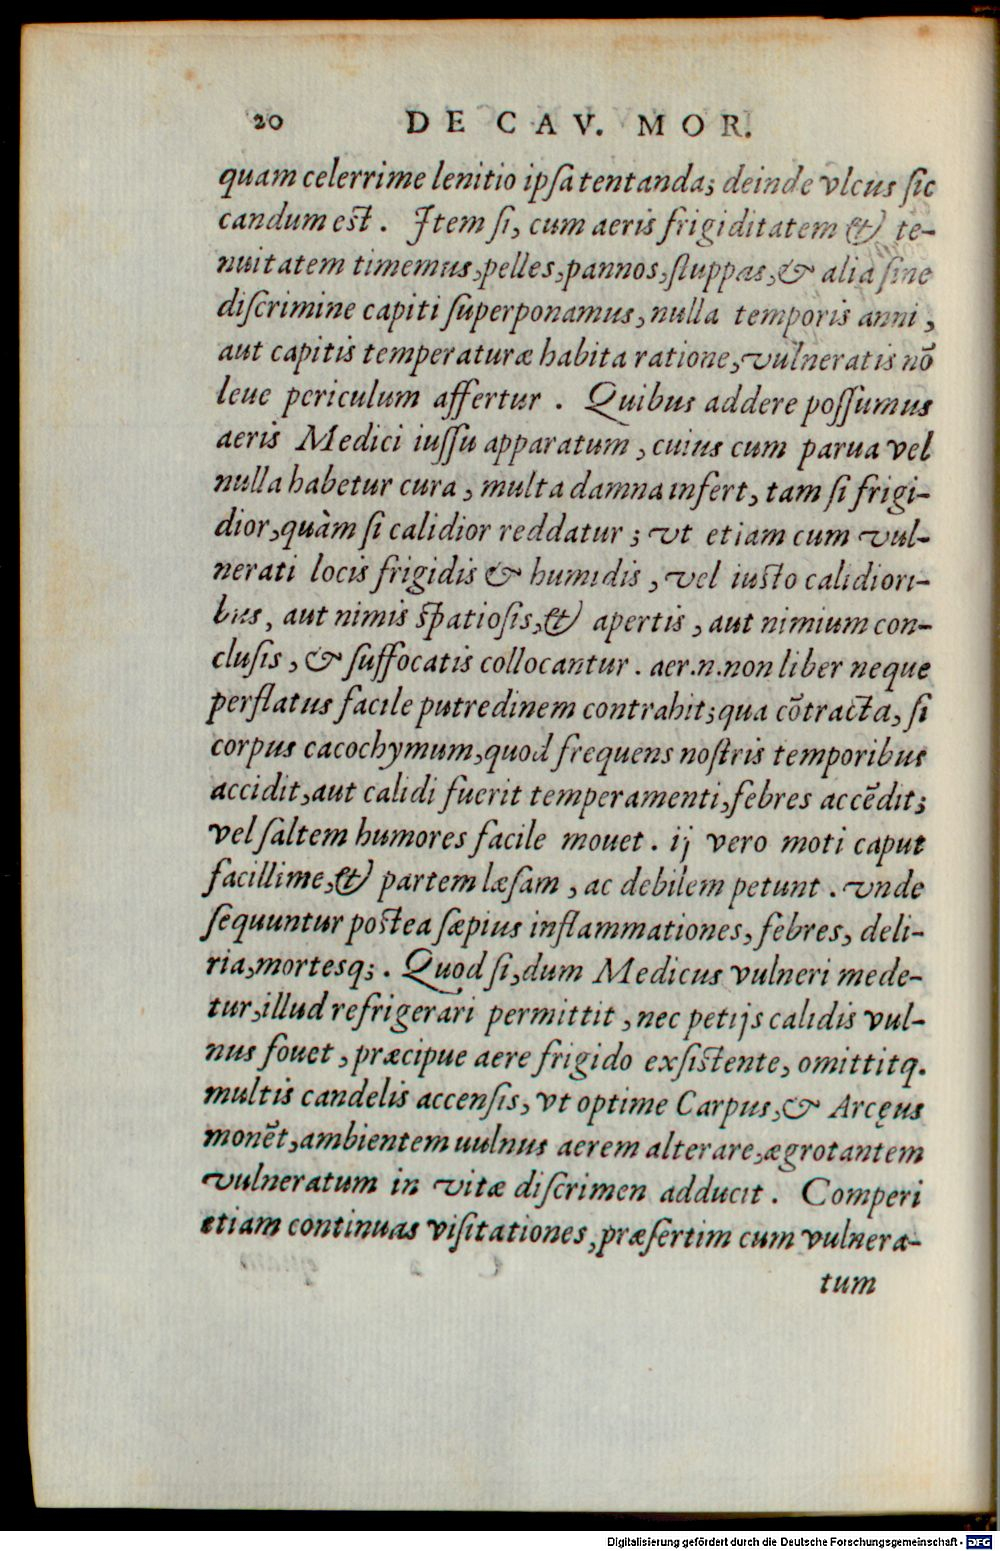 20 DE CAV. MOR.
quam celerrime lenitio ipſa tentanda; deinde vlcus ſic
candum est. Item ſi, cum aeris frigiditatem & te-
nuitatem timemus, pelles, pannos, ſtuppas, & alia ſine
diſcrimine capiti ſuperponamus, nulla temporis anni,
aut capitis temperaturæ habita ratione, vulneratis nō
leue periculum affertur. Quibus addere poſſumus
aeris Medici iuſſu apparatum, cuius cum parua vel
nulla habetur cura, multa damna infert, tam ſi frigi-
dior, quàm ſi calidior reddatur; vt etiam cum vul-
nerati locis frigidis & humidis, vel iusto calidiori-
bus, aut nimis ſpatioſis, & apertis, aut nimium con-
cluſis, & ſuffocatis collocantur. aer.n.non liber neque
perflatus facile putredinem contrahit; qua cōtracta, ſi
corpus cacochymum, quod frequens noſtris temporibus
accidit, aut calidi fuerit temperamenti, febres accēdit;
vel ſaltem humores facile mouet. ij vero moti caput
facillime, & partem læſam, ac debilem petunt. vnde
ſequuntur postea ſæpius inflammationes, febres, deli-
ria, mortesq;. Quod ſi, dum Medicus vulneri mede-
tur, illud refrigerari permittit, nec petijs calidis vul-
nus fouet, præcipue aere frigido exſistente, omittitq.
multis candelis accenſis, vt optime Carpus, & Arcęus
monēt, ambientem uulnus aerem alterare, ægrotantem
vulneratum in vitæ diſcrimen adducit. Comperi
etiam continuas viſitationes, præſertim cum vulnera-
tum
Digitalisierung gefördert durch die Deutsche Forschungsgemeinschaft - DFG